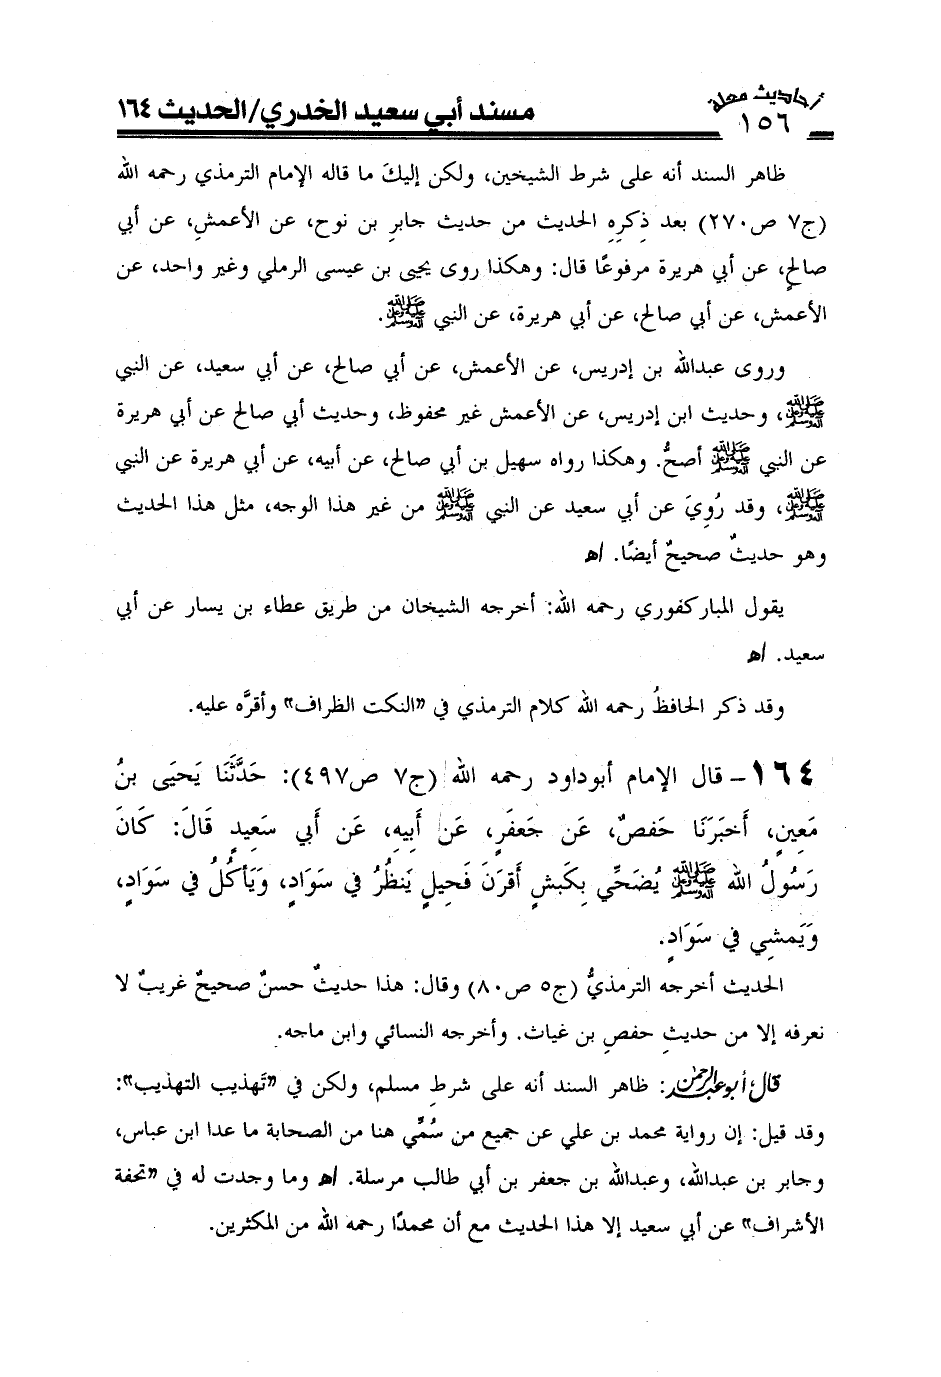 أحاديث معلة
١٥٦
مسند أبي سعيد الخدري/الحديث ١٦٤
ظاهر السند أنه على شرط الشيخين، ولكن إليكَ ما قاله الإمام الترمذي رحمه الله
(ج٧ ص٢٧٠) بعد ذِكرِهِ الحديث من حديث جابرِ بن نوح، عن الأعمشِ، عن أبي
صالحٍ، عن أبي هريرة مرفوعًا قال: وهكذا روى يحيى بن عيسى الرملي وغير واحد، عن
الأعمش، عن أبي صالح، عن أبي هريرة، عن النبي ﷺ.
وروى عبدالله بن إدريس، عن الأعمش، عن أبي صالح، عن أبي سعيد، عن النبي
ﷺ، وحديث ابن إدريس، عن الأعمش غير محفوظ، وحديث أبي صالح عن أبي هريرة
عن النبي ﷺ أصحُّ. وهكذا رواه سهيل بن أبي صالح، عن أبيه، عن أبي هريرة عن النبي
ﷺ، وقد رُوِيَ عن أبي سعيد عن النبي ﷺ من غير هذا الوجه، مثل هذا الحديث
وهو حديثٌ صحيحٌ أيضًا. اهـ
يقول المباركفوري رحمه الله: أخرجه الشيخان من طريق عطاء بن يسار عن أبي
سعيد. اهـ
وقد ذكر الحافظُ رحمه الله كلام الترمذي في «النكت الظراف» وأقرَّه عليه.
١٦٤ - قال الإمام أبوداود رحمه الله (ج٧ ص٤٩٧): حَدَّثَنَا يَحيَى بنُ
مَعِينٍ، أَخبَرَنَا حَفصٌ، عَن جَعفَرٍ، عَن أَبِيهِ، عَن أَبي سَعِيدٍ قَالَ: كَانَ
رَسُولُ الله ﷺ يُضَحِّي بِكَبشٍ أَقرَنَ فَحِيلٍ يَنظُرُ فِي سَوَادٍ، وَيَأكُلُ فِي سَوَادٍ،
وَيَمشِي فِي سَوَادٍ.
الحديث أخرجه الترمذيُّ (ج٥ ص٨٠) وقال: هذا حديثٌ حسنٌ صحيحٌ غريبٌ لا
نعرفه إلا من حديثِ حفصِ بن غياث. وأخرجه النسائي وابن ماجه.
قال أبوعبدالرحمن: ظاهر السند أنه على شرطِ مسلم، ولكن في «تَهذيب التهذيب»:
وقد قيل: إن رواية محمد بن علي عن جميع من سُمِّي هنا من الصحابة ما عدا ابن عباس،
وجابر بن عبدالله، وعبدالله بن جعفر بن أبي طالب مرسلة. اهـ وما وجدت له في «تحفة
الأشراف» عن أبي سعيد إلا هذا الحديث مع أن محمدًا رحمه الله من المكثرين.